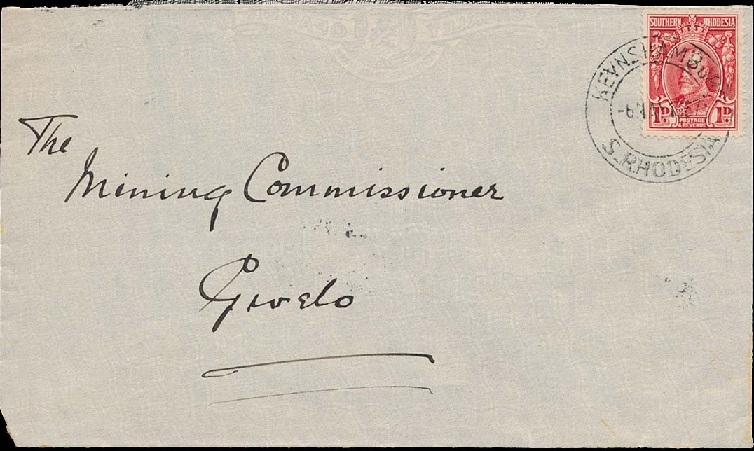 SOUTHERN RHODESIA
1D POSTAGE & REVENUE 1D
S. RHODESIA
The
Mining Commissioner
Gwelo